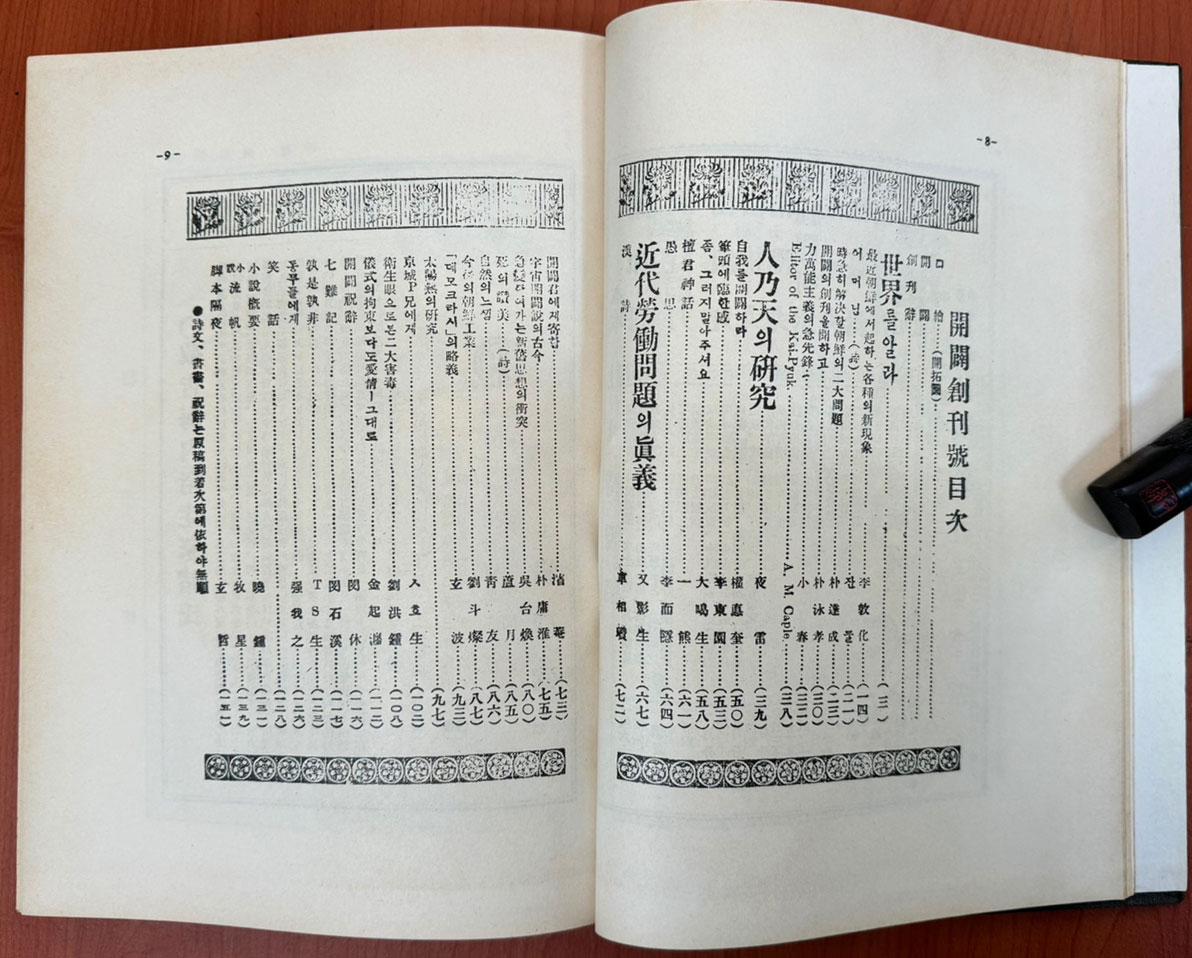 -8-
開闢創刊號目次
口繪(開拓圖)
開闢
創刊辭
世界를알라(三)
最近朝鮮에서起하는各種의新現象 李敦化(一四)
어머님(詩) 잔물(二一)
時急히解決할朝鮮의二大問題 朴達成(二三)
開闢의創刊을聞하고 朴泳孝(三○)
力萬能主義의急先鋒 小春(三二)
Elitor of the Kai-Pyuk. A. M. Caple (三八)
人乃天의硏究 夜雷(三九)
自我를開闢하라 權悳奎(五○)
筆頭에臨한感 李東園(五三)
좀、그러지말아주셔요 大喝生(五八)
檀君神話 一熊(六一)
愚思 李而䃤(六四)
近代勞働問題의眞義 又影生(六七)
漢詩 車相瓚(七二)
-9-
開闢君에게寄함 菴(七三)
宇宙開闢說의古今 朴庸淮(七五)
急變하여가는新舊思想의衝突 吳台煥(八○)
死의讚美(詩) 蘆月(八五)
自然의느낌 靑友(八六)
今後의朝鮮工業 劉斗燦(八七)
「데모크라시」의略義 玄波(九三)
太陽熱의硏究(九七)
京城P兄에게 ㅅㅎ生(一○二)
衛生眼으로본二大害毒 劉洪鍾(一○八)
儀式의拘束보다도愛情ㅣ그대로 金起瀍(一一二)
開闢祝辭 閔休(一一六)
七難記 閔石溪(一一七)
孰是孰非 TS生(一二三)
동무를에게 强我之(一二六)
笑話(一二八)
小說槪要 曉鍾(一三一)
小說 流帆 牧星(一三九)
脚本隔夜 玄哲(一五一)
●詩文、書畵、祝辭는原稿到着次第에依하야無順